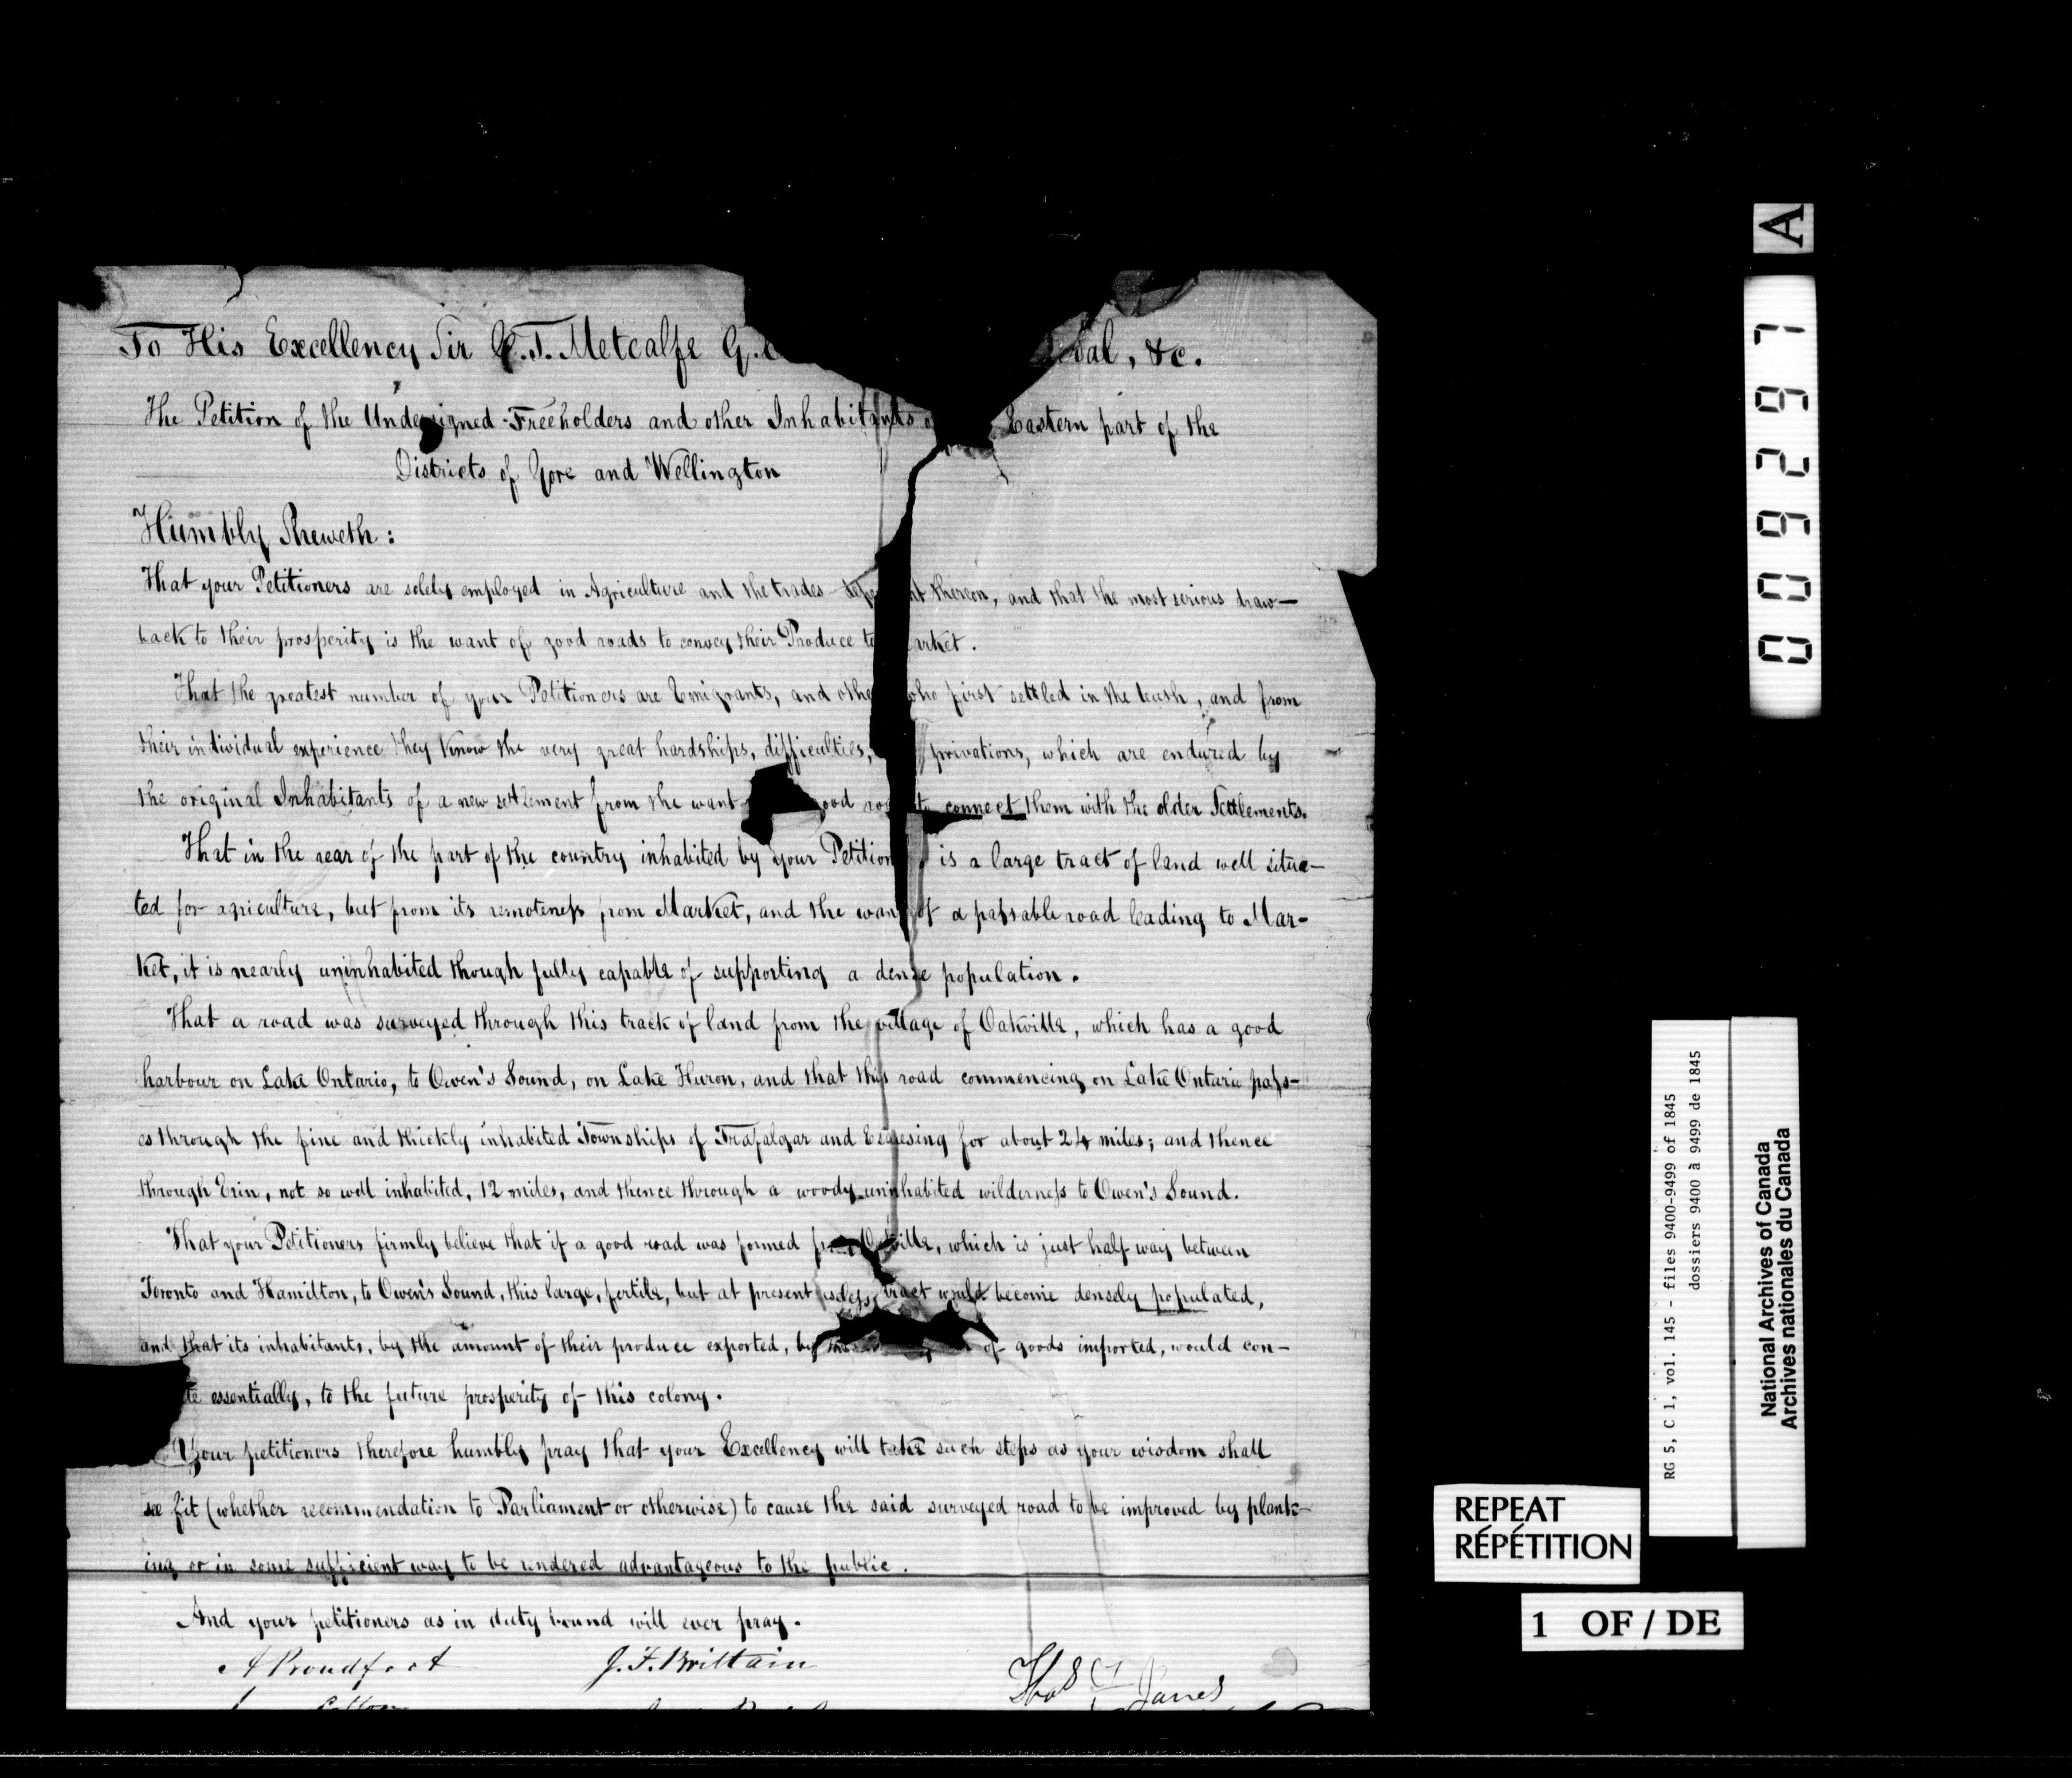 To His Excellency Sir C.T. Metcalfe G.C &c.
The Petition of the Undersigned Freeholders and other Inhabitants of Eastern part of the
Districts of Gore and Wellington
Humbly Sheweth:
That your Petitioners are solely employed in Agriculture and the trades thereon, and that the most serious draw-
back to their prosperity is the want of good roads to convey their Produce to arket.
That the greatest number of your Petitioners are Emigrants, and othe who first settled in the bush, and from
their individual experience they Know the very great hardships, difficulties, privations, which are endured by
the original Inhabitants of a new settlement from the want ood roa to connect them with the older Settlements.
That in the rear of the part of the country inhabited by your Petition is a large tract of land well situa-
ted for agriculture, but from its remoteness from Market, and the want of a passable road leading to Mar-
ket, it is nearly uninhabited though fully capable of supporting a dense population.
That a road was surveyed through this track of land from the village of Oakville, which has a good
harbour on Lake Ontario, to Owen's Sound, on Lake Huron, and that this road commencing on Lake Ontario pass-
es through the fine and thickly inhabited Townships of Trafalgar and Esquesing for about 24 miles; and thence
through Erin, not so well inhabited, 12 miles, and thence through a woody uninhabited wilderness to Owen's Sound.
That your Petitioners firmly believe that if a good road was formed from Oakville, which is just half way between
Toronto and Hamilton, to Owen's Sound, this large, fertile, but at present useless, tract would become densely populated,
and that its inhabitants, by the amount of their produce exported, by of goods imported, would con-
te essentially, to the future prosperity of this colony.
Your petitioners therefore humbly pray that your Excellency will take such steps as your wisdom shall
see fit (whether recommendation to Parliament or otherwise) to cause the said surveyed road to be improved by plank-
ing or in some sufficient way to be rendered advantageous to the public.
And your petitioners as in duty bound will ever pray.
A Proudfoot J. F. Brittain Thos Janes
A
009297
RG 5, C 1, vol. 145 - files 9400-9499 of 1845
dossiers 9400 à 9499 de 1845
National Archives of Canada
Archives nationales du Canada
REPEAT
RÉPÉTITION
1 OF / DE